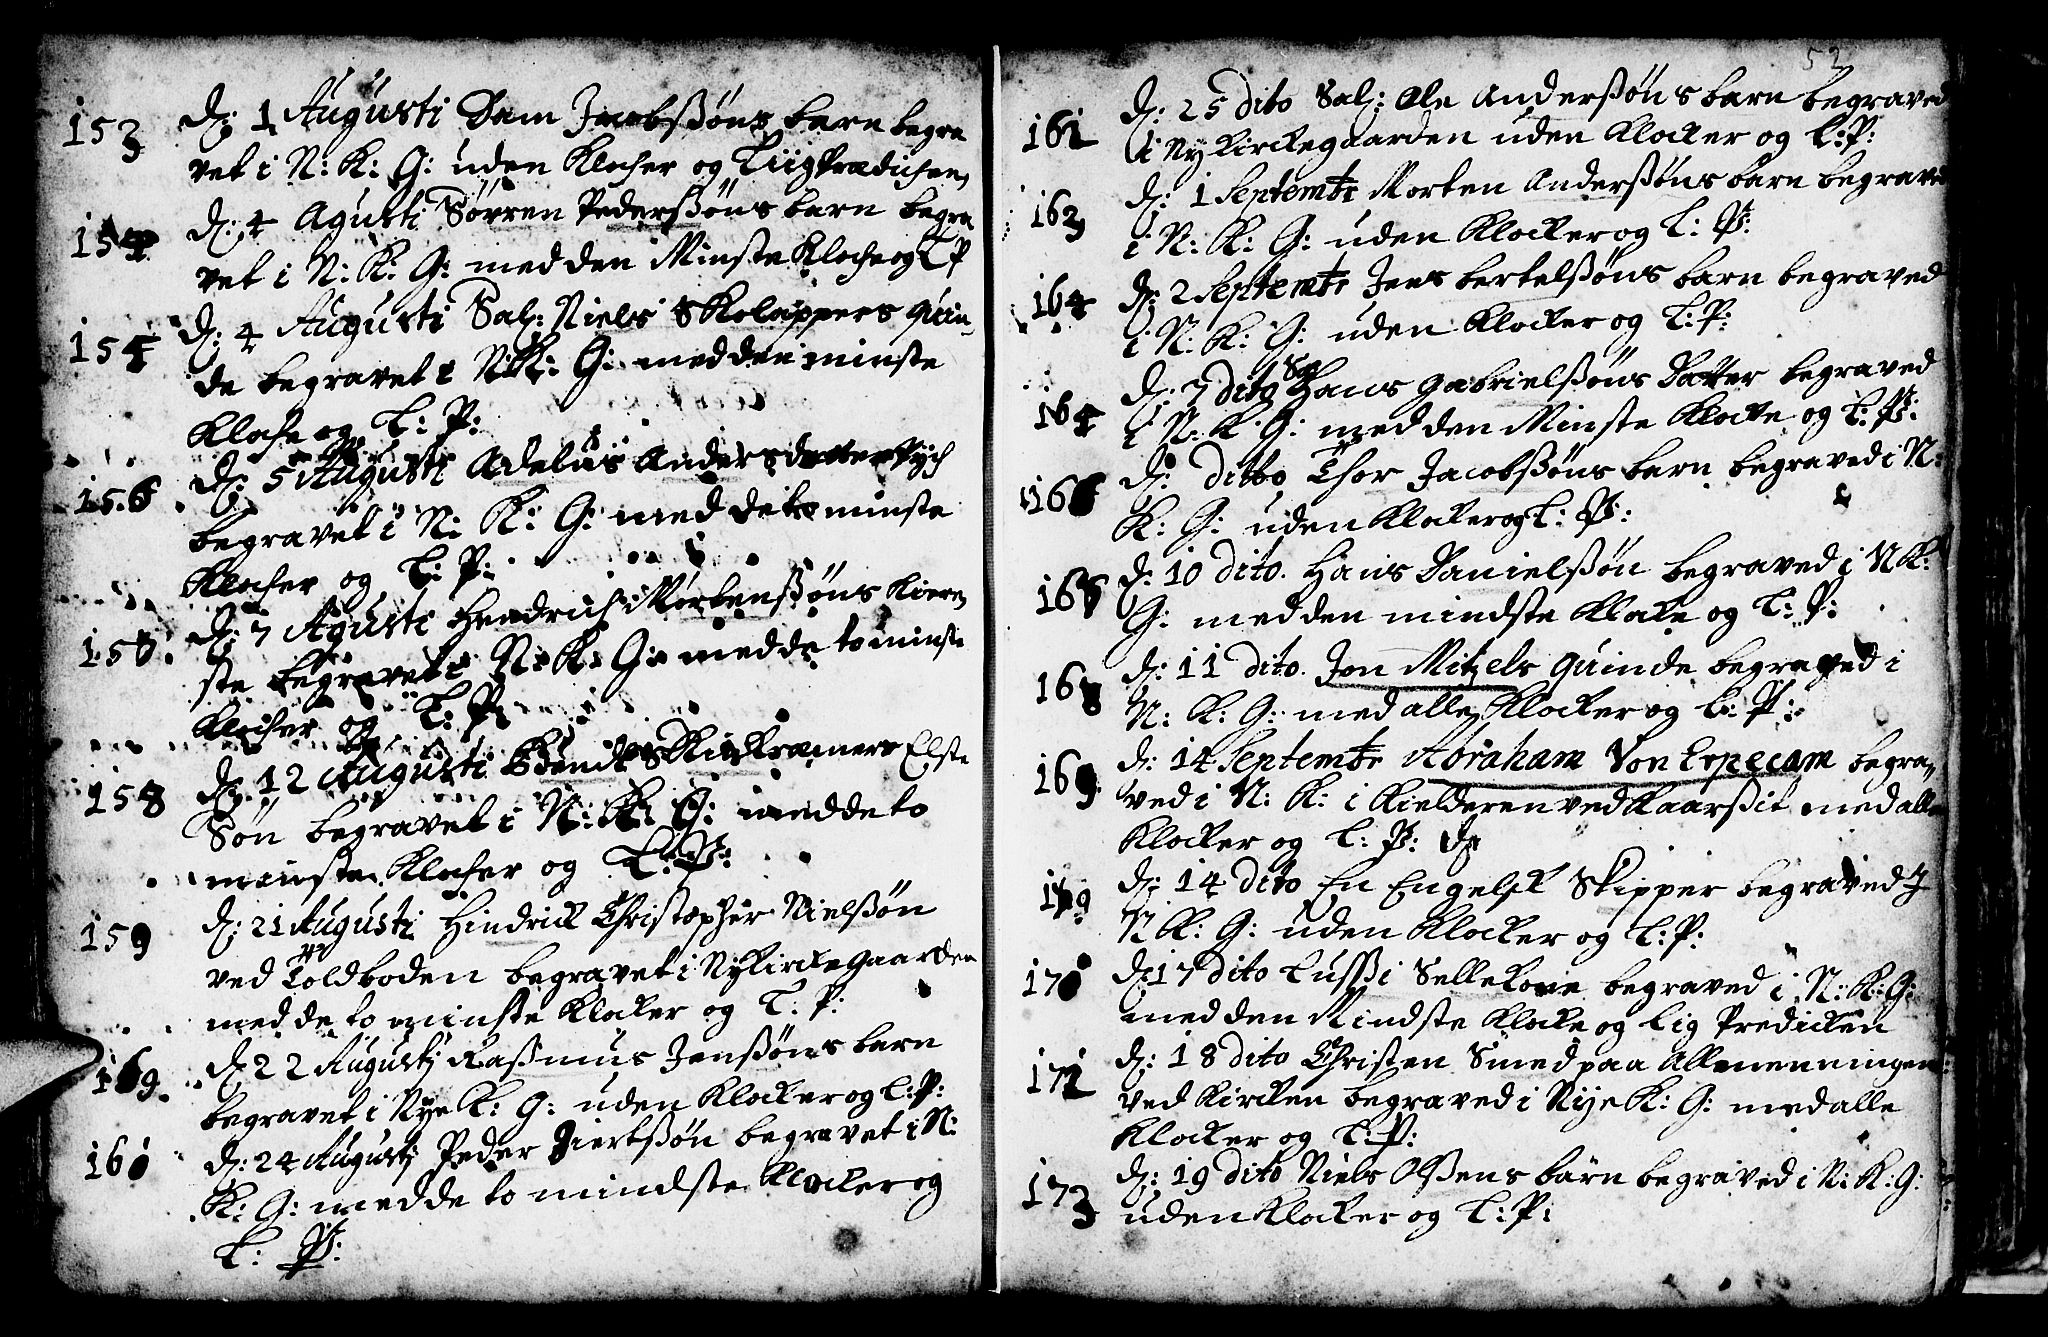 153 d: 1 Augusti Dam Jacobßøns barn begra
vet i N: K: G: uden Klocher og Liigprædichen,
154 d: 4 Agusti Sørren Pederßøns barn begra
vet i N: K: G: med den Minste Kloche og L P
154 d: 4 Augusti Sal: Niels Skolappers quin,,
de begravet i N: K: G: med den minste
Kloche og L: P:
156 d: 5 Augusti Adelus Andersdatter
begravet i N: K: G: med de to minste
Klocher og L: P:
158. d: 7 Agusti Hendrich Mortenßøns Kiere,,
ste begravet i N: K: G: med de to minste
Klocher og L: P:
158 d: 12 Augusti Elste
Søn begravet i N: K: G: med de to
minste Klocher og L: P:
159 d: 21 Augusti Hindrick Christopher Nielßøn
ved Toldboden begravet i Nykircke Gaarden
med de to minste Klocker og L: P:
169. d: 22 Augustj Raßmus Jenßøns barn
begravet i Nye K: G: uden Klocker og L: P:
160 d: 24 Augustj Peder Siertßøn begravet i N:
K: G: med de to mindste Klocker og
L: P:
52
161 d: 25 dito Sal: Ole Anderßøns barn begraved
i Ny Kirckegaarden uden Klocker og L: P:
163 d: 1 Septembr Morten Anderßøns barn begraved
i N: K: G: uden Klocker og L: P:
164 d: 2 Septembr Jens bertelßøns barn begraved
i N: K: G: uden Klocker og L: P:
164 d: 7 dito Sal Hans Gabrielßøns Datter begraved
i N: K: G: med den Minste Klocke og L: P:
166 d: ditto Thor Jacobßøns barn begraved i N:
K: G: uden Klocker og L: P:
168 d: 10 dito. Hans Danielßøn begraved i N K:
G: med den mindste Klocke og L: P:
168 d: 11 dito. Jon Mitzels quinde begraved i
N: K: G: med alle Klocker og L: P:
169 d: 14 Septembr Abraham Von Erpecam begra,,
ved i N: K: i Kielderen ved Kaarßit med alle
Klocker og L: P:
169 d: 14 dito En Engelsk Skipper begraved J
N K: G: uden Klocker og L: P:
170 d: 17 dito Lussi Sellekone begraved i N: K: G:
med den Mindste Klocke og Lig Predicken
171 d: 18 dito Christen Smed paa Allmenningen
ved Kircken begraved i Nye K: G: med alle
Klocker og L: P:
173 d: 19 dito Niels Olßens barn begraved i N: K: G:
uden Klocker og L: P: